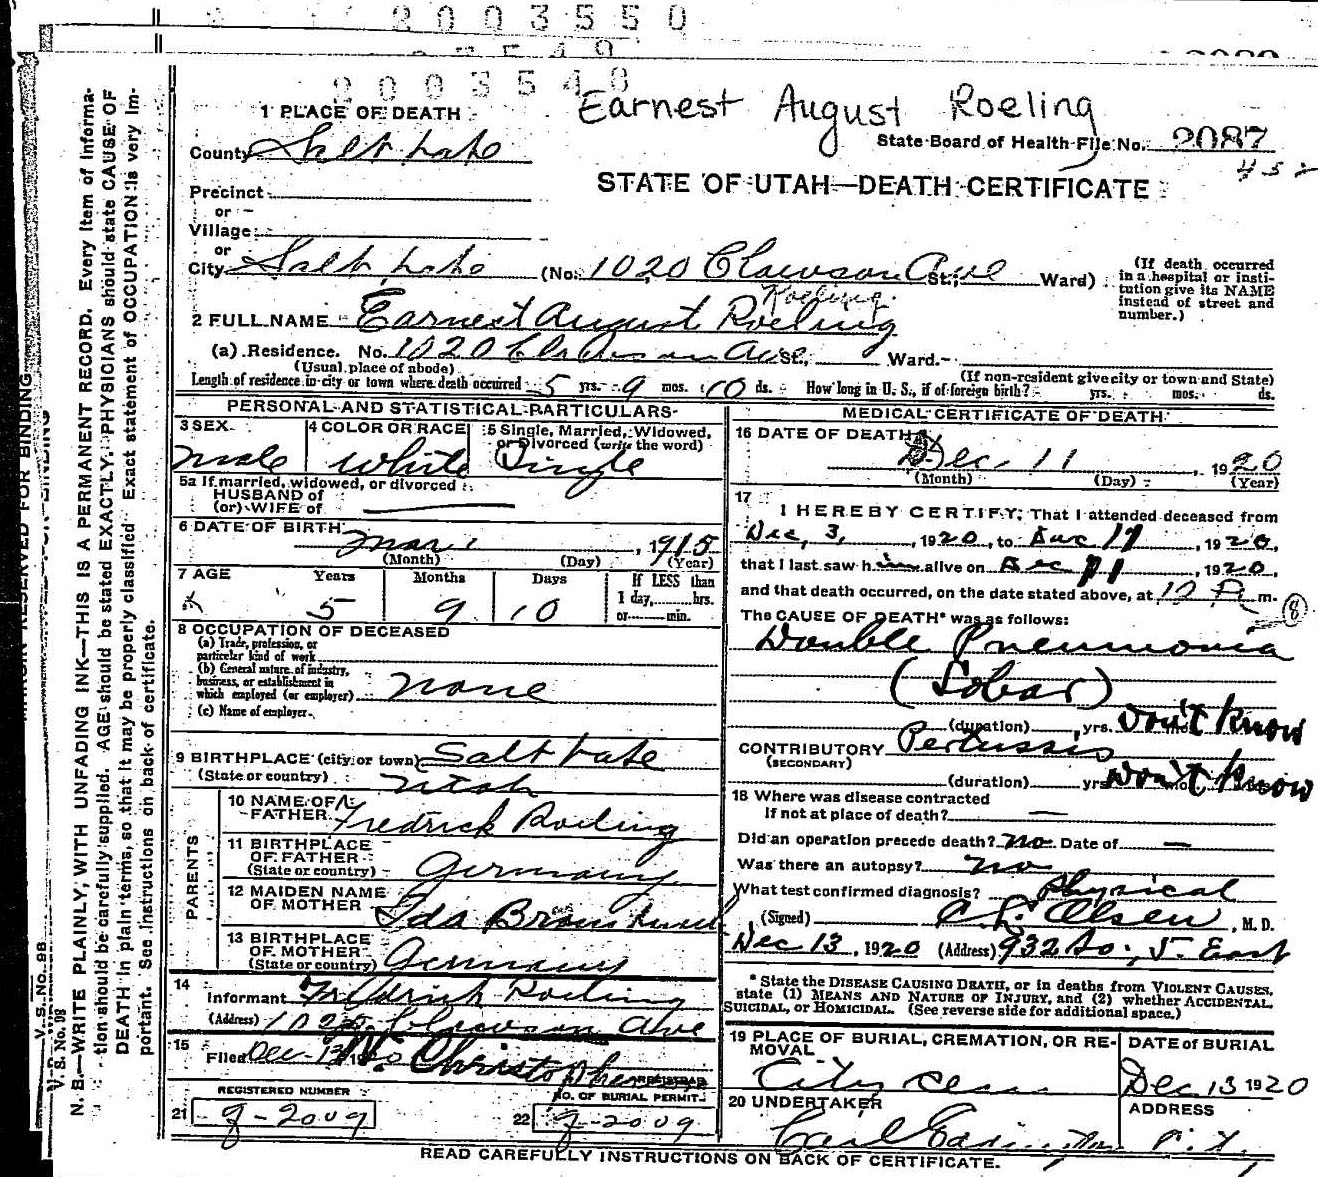 2003550
2003548
Earnest August Roeling
1 PLACE OF DEATH
State Board of Health File No. 2087
County Salt Lake
452
STATE OF UTAH—DEATH CERTIFICATE
Precinct
or
Village
or
City Salt Lake (No. 1020 Clawson Ave St., Ward)
(If death occurred in a hospital or institution give its NAME instead of street and number.)
Roeling
2 FULL NAME Earnest August Roeling
(a) Residence. No. 1020 Clawson Ave St., Ward.
(Usual place of abode) (If non-resident give city or town and State)
Length of residence in city or town where death occurred 5 yrs. 9 mos. 10 ds. How long in U. S., if of foreign birth? yrs. mos. ds.
PERSONAL AND STATISTICAL PARTICULARS
3 SEX
male
4 COLOR OR RACE
White
5 Single, Married, Widowed, or Divorced (write the word)
Single
5a If married, widowed, or divorced
HUSBAND of
(or) WIFE of
6 DATE OF BIRTH
Mar 1, 1915
(Month) (Day) (Year)
7 AGE Years Months Days If LESS than
1 day, hrs.
or min.
5 9 10
8 OCCUPATION OF DECEASED
(a) Trade, profession, or
particular kind of work
(b) General nature of industry,
business, or establishment in
which employed (or employer) none
(c) Name of employer
9 BIRTHPLACE (city or town) Salt Lake
(State or country) Utah
PARENTS
10 NAME OF
FATHER Fredrick Roeling
11 BIRTHPLACE
OF FATHER
(State or country) Germany
12 MAIDEN NAME
OF MOTHER Ida
13 BIRTHPLACE
OF MOTHER
(State or country) Germany
14
Informant Fredrick Roeling
(Address) Clawson Ave
15
Filed Dec 13 Christopherson
REGISTRAR
REGISTERED NUMBER
21 g-2009
NO. OF BURIAL PERMIT
22 g-2009
MEDICAL CERTIFICATE OF DEATH
16 DATE OF DEATH
Dec. 11, 1920
(Month) (Day) (Year)
17
I HEREBY CERTIFY, That I attended deceased from
Dec, 3, 1920, to Dec 11, 1920,
that I last saw him alive on Dec 11, 1920,
and that death occurred, on the date stated above, at 12 P m.
The CAUSE OF DEATH* was as follows:
8
Double Pneumonia
(Lobar)
(duration) yrs. Don't Know
CONTRIBUTORY Pertussis
(SECONDARY)
(duration) yrs Don't Know
18 Where was disease contracted
If not at place of death? —
Did an operation precede death? no Date of —
Was there an autopsy? no
What test confirmed diagnosis? Physical
(Signed) C. L. Olsen, M. D.
Dec 13, 1920 (Address) 932 So; 5. East
* State the DISEASE CAUSING DEATH, or in deaths from VIOLENT CAUSES,
state (1) MEANS AND NATURE OF INJURY, and (2) whether ACCIDENTAL,
SUICIDAL, or HOMICIDAL. (See reverse side for additional space.)
19 PLACE OF BURIAL, CREMATION, OR RE-
MOVAL
City Cem
DATE of BURIAL
Dec 13 1920
20 UNDERTAKER
ADDRESS
READ CAREFULLY INSTRUCTIONS ON BACK OF CERTIFICATE.
MARGIN RESERVED FOR BINDING
V. S. No. 98
N. B.—WRITE PLAINLY, WITH UNFADING INK—THIS IS A PERMANENT RECORD. Every item of informa-
tion should be carefully supplied. AGE should be stated EXACTLY. PHYSICIANS should state CAUSE OF
DEATH in plain terms, so that it may be properly classified. Exact statement of OCCUPATION is very im-
portant. See instructions on back of certificate.